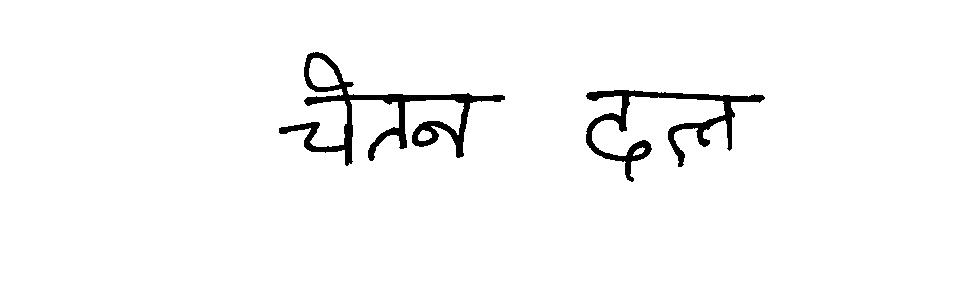 चेतन दत्त